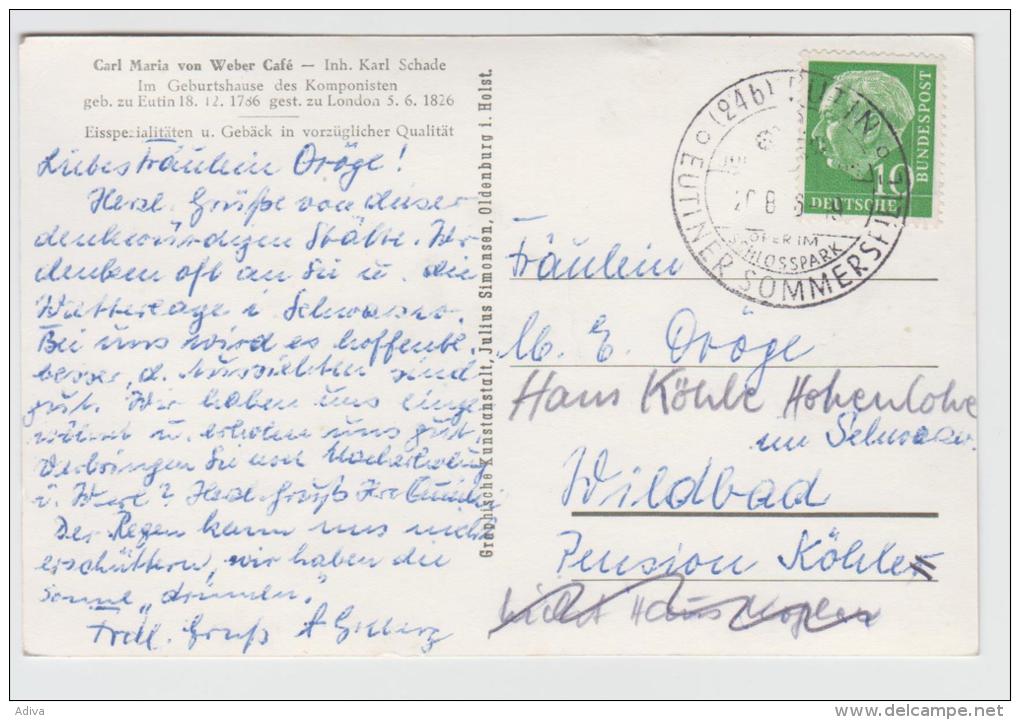 Carl Maria von Weber Café — Inh. Karl Schade
Im Geburtshause des Komponisten
geb. zu Eutin 18. 12. 1786 gest. zu London 5. 6. 1826
Eisspezialitäten u. Gebäck in vorzüglicher Qualität
Liebes Fräulein Dröge!
Herzl. Grüße von dieser
denkwürdigen Stätte. Wir
denken oft an Sie u. die
Wetterlage i. Schwarzw.
Bei uns wird es hoffentl.
besser, d. Aussichten sind
gut. Wir haben uns einge
wöhnt u. erholen uns gut.
Verbringen Sie noch
u. ? Herzl. Gruß Ihre
Der Regen kann uns nicht
erschüttern, wir haben die
Sonne „drinnen".
Frdl. Gruß
Graphische Kunstanstalt, Julius Simonsen, Oldenburg i. Holst.
(24b) EUTIN
20.8.
OPER IM
SCHLOSSPARK
EUTINER SOMMERSPIELE
10
DEUTSCHE
BUNDESPOST
Fräulein
M. E. Dröge
Hans Köhle Hohenlohe
im Schwarzw.
Wildbad
Pension Köhler
Haus
Adiva
delcampe.net